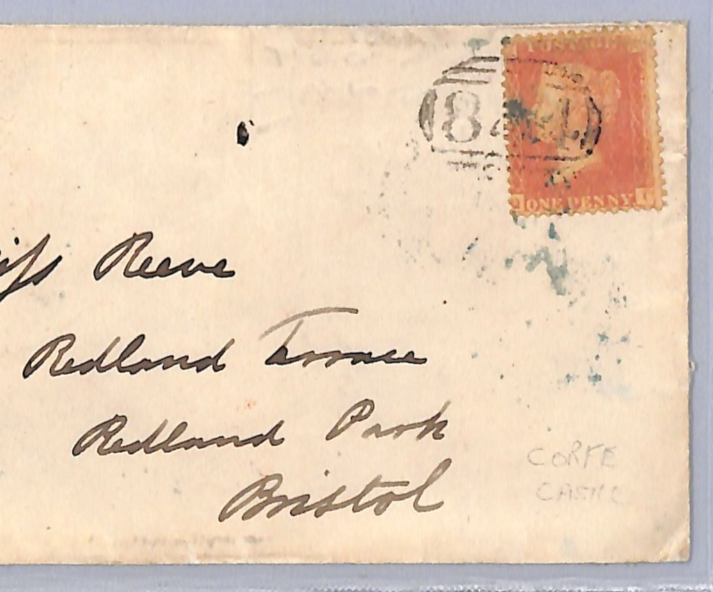 POSTAGE
844
ONE PENNY
iss Reeve
Redland Terrace
Redland Park
Bristol
CORFE
CASTLE